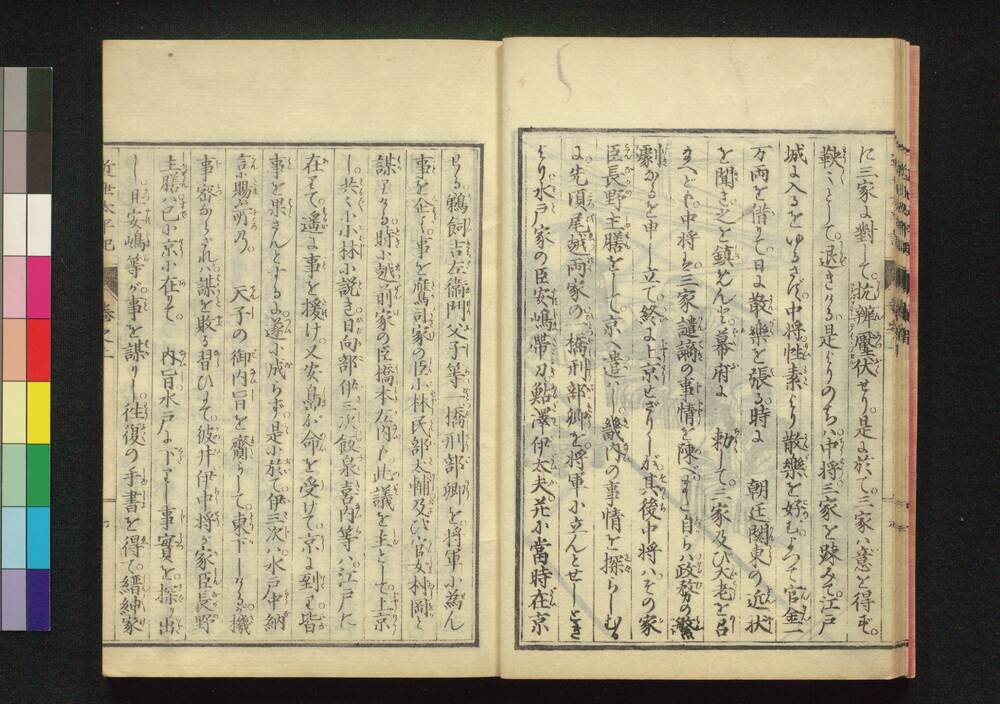 に三家に對して。抗辨壓伏せり。是に於て。三家ハ意を得ず。
鞅〻として。退きける是よりのち。中将三家を疎みて江戸
城に入るをゆるさず。中将性素より散樂を好むよつて官金一
万両を借りて日に散樂を張る。時に 朝廷関東の近状
を聞き。之を鎮ぜんと。幕府に 勅して。三家及び大老を召
さへども。中将ハ三家譴謫の事情を陳べず。自らハ政務の繁
劇なるを申し立て。終に上京せざりしが。其後中将ハその家
臣長野主膳をして。京へ遣ハし。畿内の事情を探らしむる
に。先頃尾越両家の。一橋刑部卿を。将軍小立んとせしとき
より水戸家の臣安嶋帯刀鮎澤伊太夫。并小當時在京
せる。鵜飼吉左衛門父子等。一橋刑部卿を。将軍小為ん
事を企て。事を鷹司家の臣小林民部太輔及び。官女村岡と
謀りける。時小越前家の臣橋本左内も。此議を主として。上京
し。共〻小小林小説き。日向部伊三次飯泉喜内等ハ。江戸に
在りて。遙に事を援け又安島が命を受けて。京に到り。皆
事を果さんとするに。遂小成らず。是小於て。伊三次ハ水戸中納
言小賜ふ所乃 天子の御内旨を齎らして。東下しける。機
事密ならざれハ。謀を敗る習ひにて。彼井伊中将ガ家臣長野
主膳ハ已小京小在りて 内旨水戸に下りし。事實を探り出
し。且安嶋等ガ。事を謀りし。徃復の手書を得て。縉紳家
近世太平記 巻之二